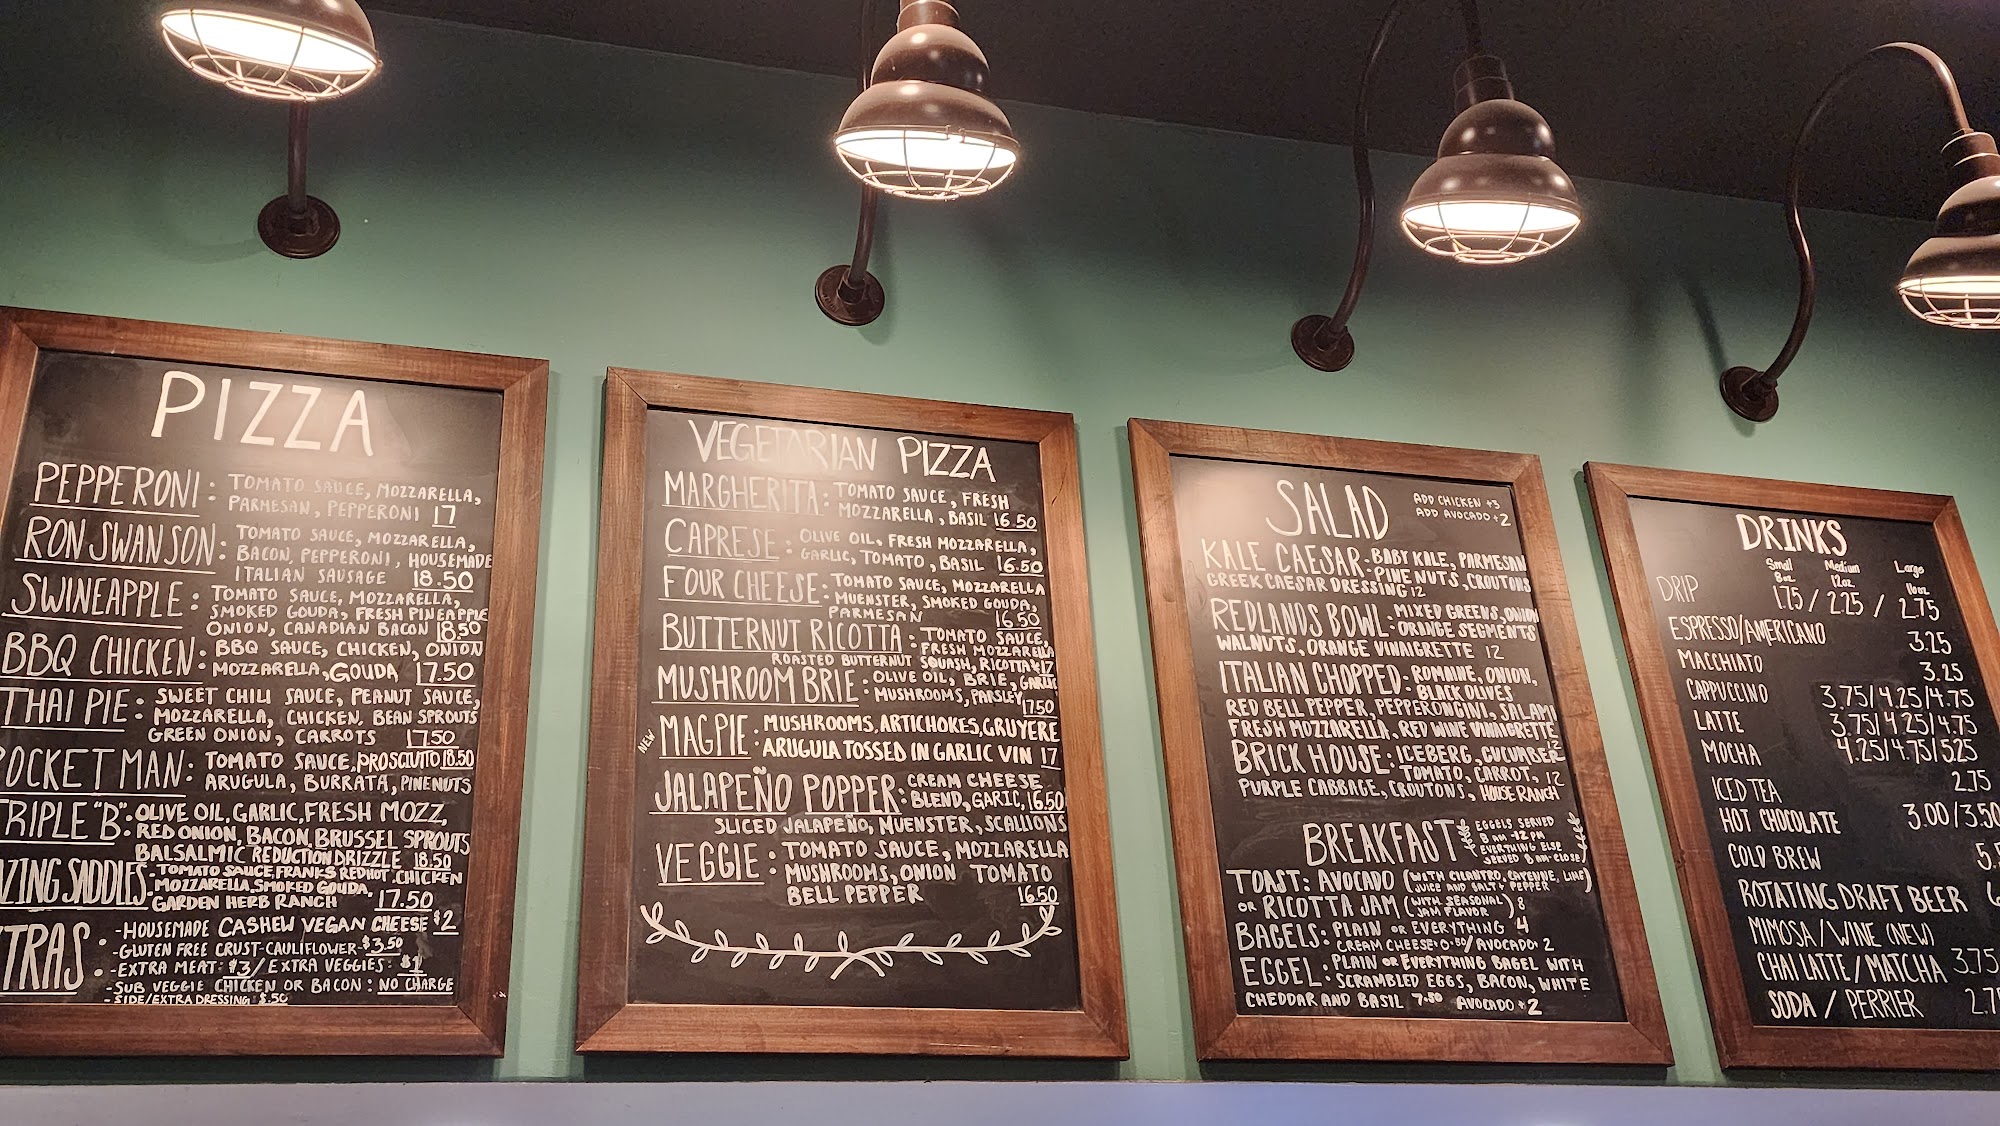 PIZZA
PEPPERONI: TOMATO SAUCE, MOZZARELLA,
PARMESAN, PEPPERONI 17
RON SWANSON: TOMATO SAUCE, MOZZARELLA,
BACON, PEPPERONI, HOUSEMADE
ITALIAN SAUSAGE 18.50
SWINEAPPLE: TOMATO SAUCE, MOZZARELLA,
SMOKED GOUDA, FRESH PINEAPPLE
ONION, CANADIAN BACON 18.50
BBQ CHICKEN: BBQ SAUCE, CHICKEN, ONION
MOZZARELLA, GOUDA 17.50
THAI PIE: SWEET CHILI SAUCE, PEANUT SAUCE,
MOZZARELLA, CHICKEN, BEAN SPROUTS
GREEN ONION, CARROTS 17.50
OCKET MAN: TOMATO SAUCE, PROSCIUTTO 18.50
ARUGULA, BURRATA, PINENUTS
TRIPLE "B": OLIVE OIL, GARLIC, FRESH MOZZ,
RED ONION, BACON, BRUSSEL SPROUTS
BALSALMIC REDUCTION DRIZZLE 18.50
AZING SADDLES: TOMATO SAUCE, FRANKS RED HOT, CHICKEN
MOZZARELLA, SMOKED GOUDA,
GARDEN HERB RANCH 17.50
XTRAS: -HOUSEMADE CASHEW VEGAN CHEESE $2
-GLUTEN FREE CRUST-CAULIFLOWER-$3.50
-EXTRA MEAT: $3/EXTRA VEGGIES: $1
-SUB VEGGIE CHICKEN OR BACON: NO CHARGE
-SIDE/EXTRA DRESSING: $.50
VEGETARIAN PIZZA
MARGHERITA: TOMATO SAUCE, FRESH
MOZZARELLA, BASIL 16.50
CAPRESE: OLIVE OIL, FRESH MOZZARELLA,
GARLIC, TOMATO, BASIL 16.50
FOUR CHEESE: TOMATO SAUCE, MOZZARELLA
MUENSTER, SMOKED GOUDA,
PARMESAN 16.50
BUTTERNUT RICOTTA: TOMATO SAUCE,
FRESH MOZZARELLA
ROASTED BUTTERNUT SQUASH, RICOTTA 17
MUSHROOM BRIE: OLIVE OIL, BRIE, GARLIC
MUSHROOMS, PARSLEY 17.50
NEW MAGPIE: MUSHROOMS, ARTICHOKES, GRUYERE
ARUGULA TOSSED IN GARLIC VIN 17
JALAPEÑO POPPER: CREAM CHEESE
BLEND, GARIC, 16.50
SLICED JALAPEÑO, MUENSTER, SCALLIONS
VEGGIE: TOMATO SAUCE, MOZZARELLA
MUSHROOMS, ONION TOMATO
BELL PEPPER 16.50
SALAD ADD CHICKEN +3
ADD AVOCADO +2
KALE CAESAR: BABY KALE, PARMESAN
PINE NUTS, CROUTONS
GREEK CAESAR DRESSING 12
REDLANDS BOWL: MIXED GREENS, ONION
ORANGE SEGMENTS
WALNUTS, ORANGE VINAIGRETTE 12
ITALIAN CHOPPED: ROMAINE, ONION,
BLACK OLIVES
RED BELL PEPPER, PEPPERONGINI, SALAMI
FRESH MOZZARELLA, RED WINE VINAIGRETTE
12
BRICK HOUSE: ICEBERG, CUCUMBER
TOMATO, CARROT, 12
PURPLE CABBAGE, CROUTONS, HOUSE RANCH
BREAKFAST EGGELS SERVED
8 AM-12 PM
EVERYTHING ELSE
SERVED 8 AM-CLOSE
TOAST: AVOCADO (WITH CILANTRO, CAYENNE, LIME
JUICE AND SALT + PEPPER)
OR RICOTTA JAM (WITH SEASONAL
JAM FLAVOR) 8
BAGELS: PLAIN OR EVERYTHING 4
CREAM CHEESE+0.50/AVOCADO+2
EGGEL: PLAIN OR EVERYTHING BAGEL WITH
SCRAMBLED EGGS, BACON, WHITE
CHEDDAR AND BASIL 7.50 AVOCADO+2
DRINKS
Small Medium Large
8oz 12oz 16oz
DRIP 1.75 / 2.25 / 2.75
ESPRESSO/AMERICANO 3.25
MACCHIATO 3.25
CAPPUCCINO 3.75/4.25/4.75
LATTE 3.75/4.25/4.75
MOCHA 4.25/4.75/5.25
ICED TEA 2.75
HOT CHOCOLATE 3.00/3.50
COLD BREW 5.
ROTATING DRAFT BEER 6
MIMOSA/WINE (NEW)
CHAI LATTE/MATCHA 3.75
SODA / PERRIER 2.7